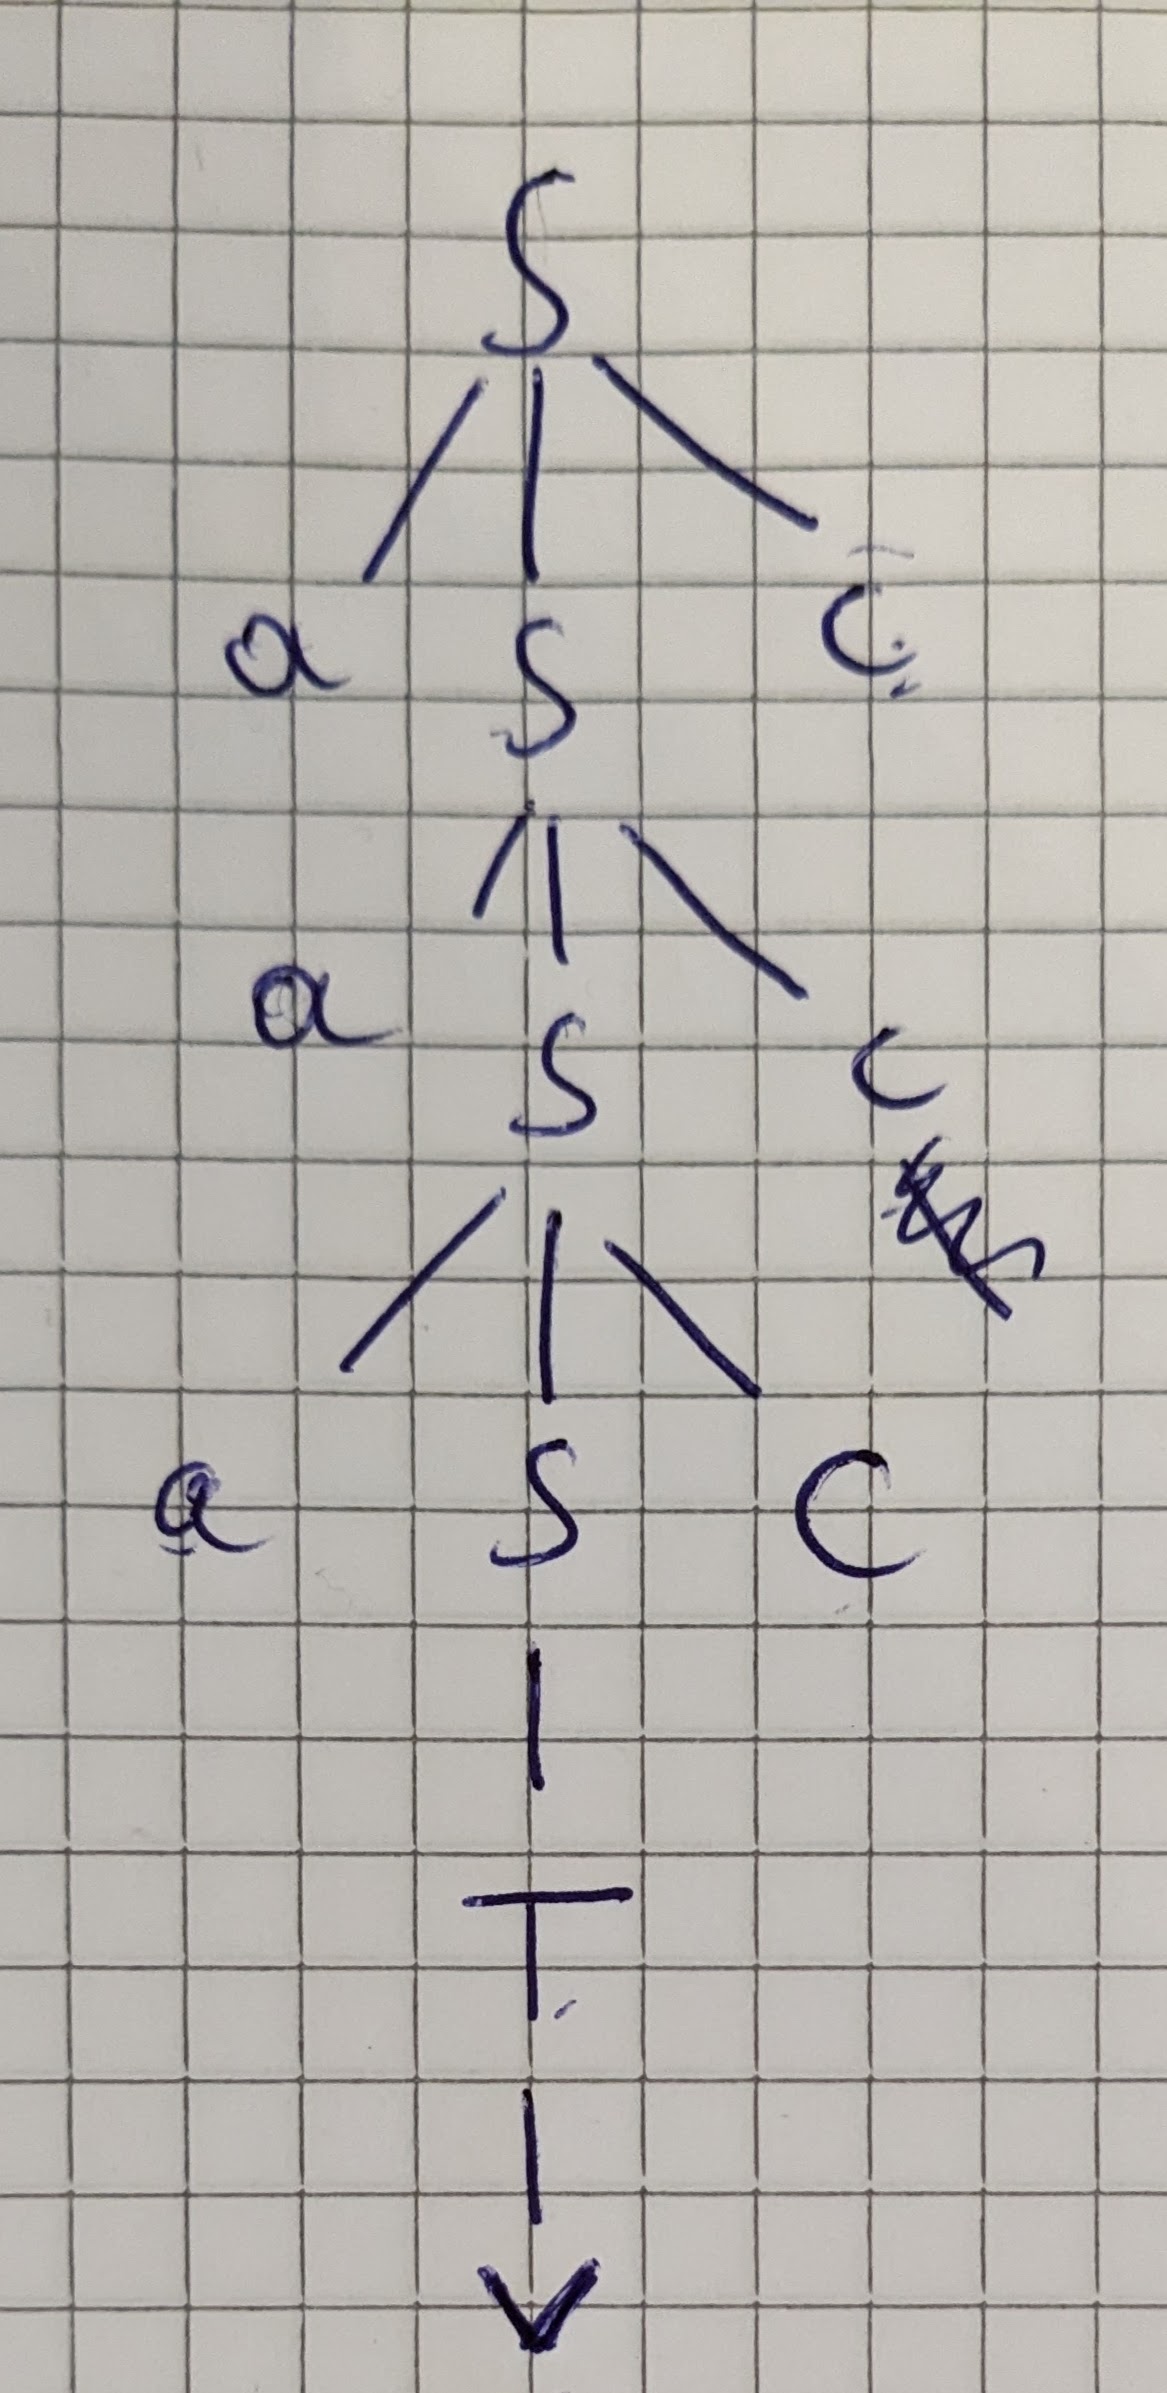 S
a S c
a S c
a S C
T
V